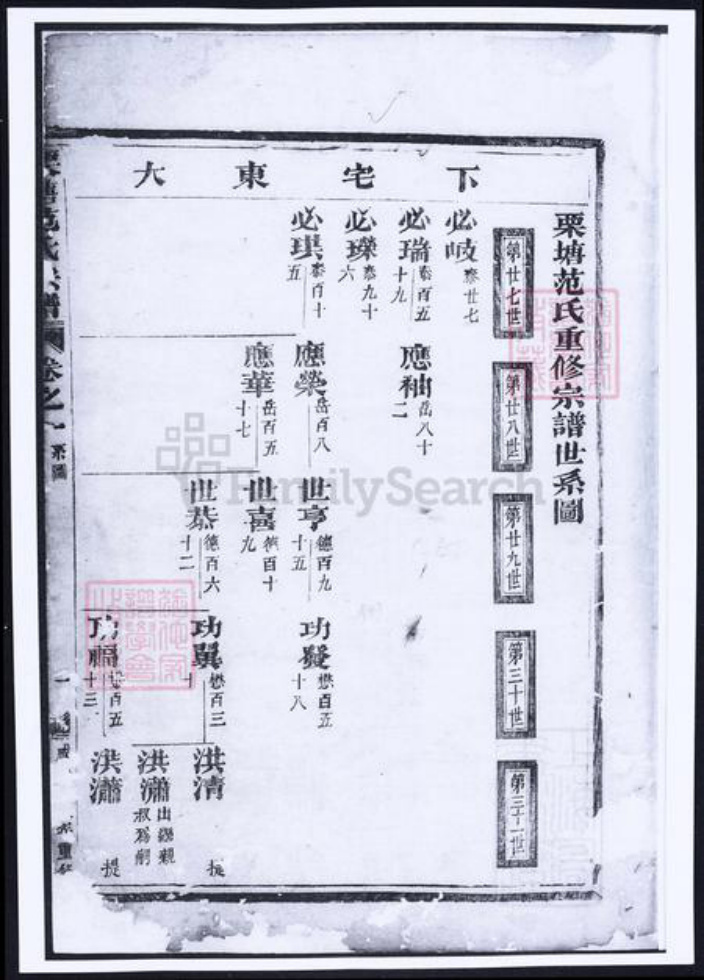 栗塘范氏重修宗譜世系圖
下宅東大
第廿七世
第廿八世
第廿九世
第三十世
第三十一世
必岐 泰廿七
必瑞 泰百五十九
必瓅 泰九十六
必琪 泰百十五
應袖 岳八十二
應榮 岳百八
應華 岳百五十七
世亨 德百九十五
世喜 德百十九
世恭 德百六十二
功發 懋百五十八
功翼 懋百三十
功福 懋百五十三
洪清 提
洪瀟 出繼親叔爲嗣
洪瀟 提
栗塘范氏宗譜
卷之一
系圖
FamilySearch